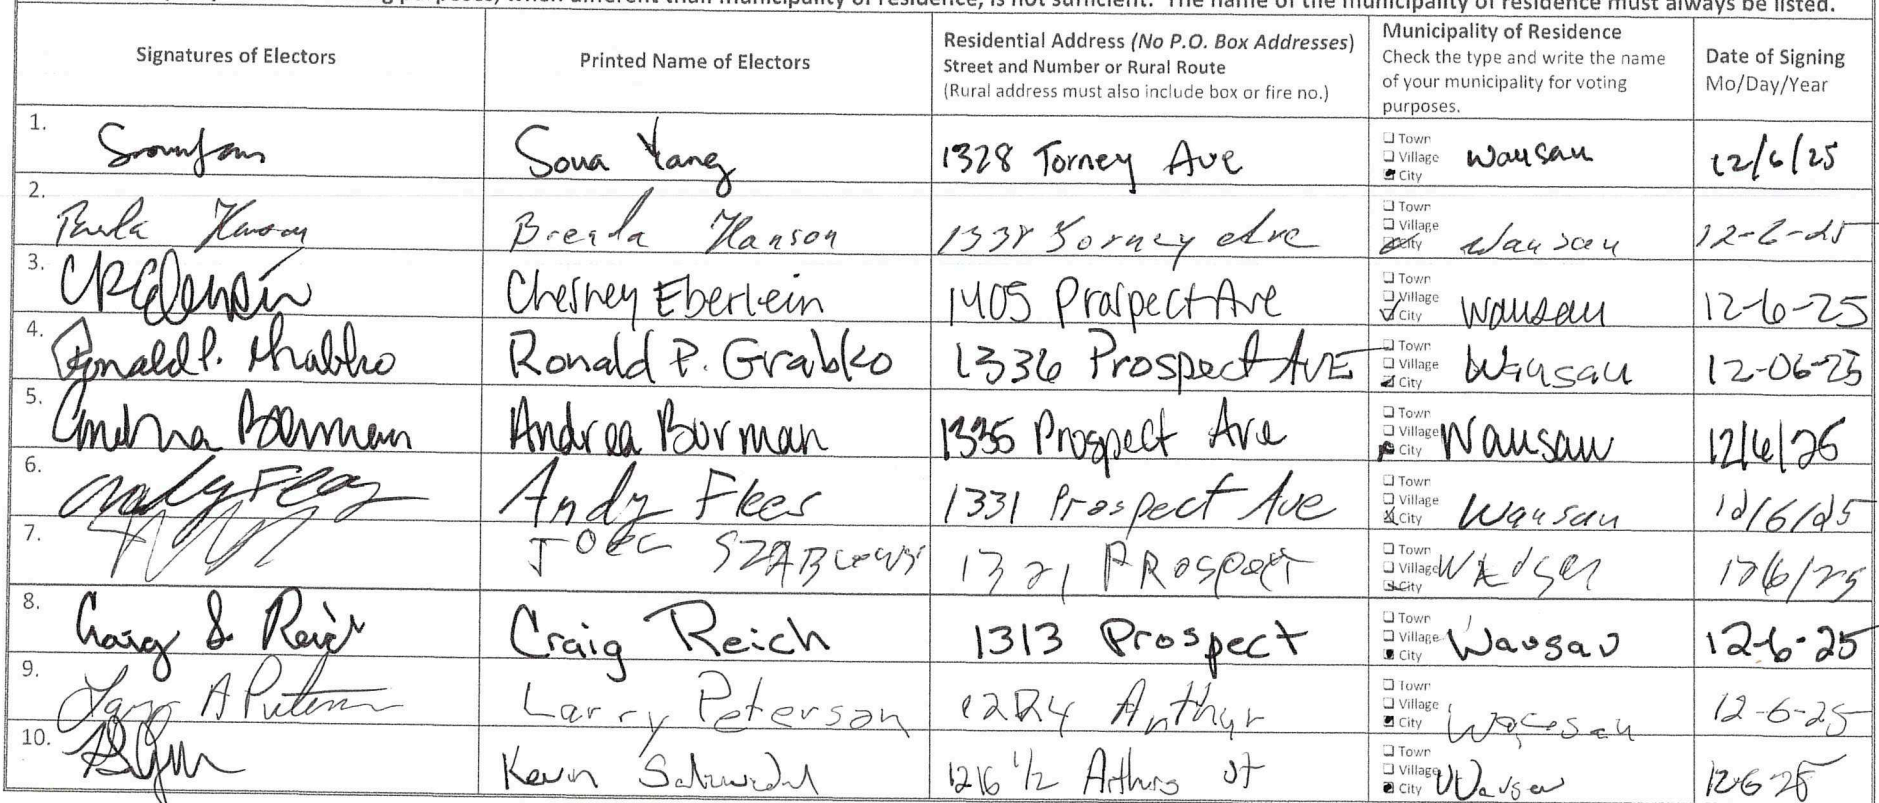 purposes, when different than municipality of residence, is not sufficient. The name of the municipality of residence must always be listed.
Signatures of Electors
Printed Name of Electors
Residential Address (No P.O. Box Addresses)
Street and Number or Rural Route
(Rural address must also include box or fire no.)
Municipality of Residence
Check the type and write the name
of your municipality for voting
purposes.
Date of Signing
Mo/Day/Year
1.
Soua Yang
1328 Torney Ave
Town
Village
City
Wausau
12/6/25
2.
Hanson
Brenda Hanson
1338 Torney Ave
Town
Village
City
Wausau
12-6-25
3.
Chesney Eberlein
1405 Prospect Ave
Town
Village
City
Wausau
12-6-25
4.
Ronald P. Grabko
Ronald P. Grabko
1336 Prospect AVE
Town
Village
City
Wausau
12-06-25
5.
Andrea Burman
Andrea Burman
1335 Prospect Ave
Town
Village
City
Wausau
12/6/25
6.
Andy Flees
Andy Flees
1331 Prospect Ave
Town
Village
City
Wausau
12/6/25
7.
1321 PROSPECT
Town
Village
City
12/6/25
8.
Craig S. Reich
Craig Reich
1313 Prospect
Town
Village
City
Wausau
12-6-25
9.
Larry A Peterson
Larry Peterson
1224 Arthur
Town
Village
City
Wausau
12-6-25
10.
Kevin
1216 1/2 Arthur St
Town
Village
City
Wausau
12-6-25